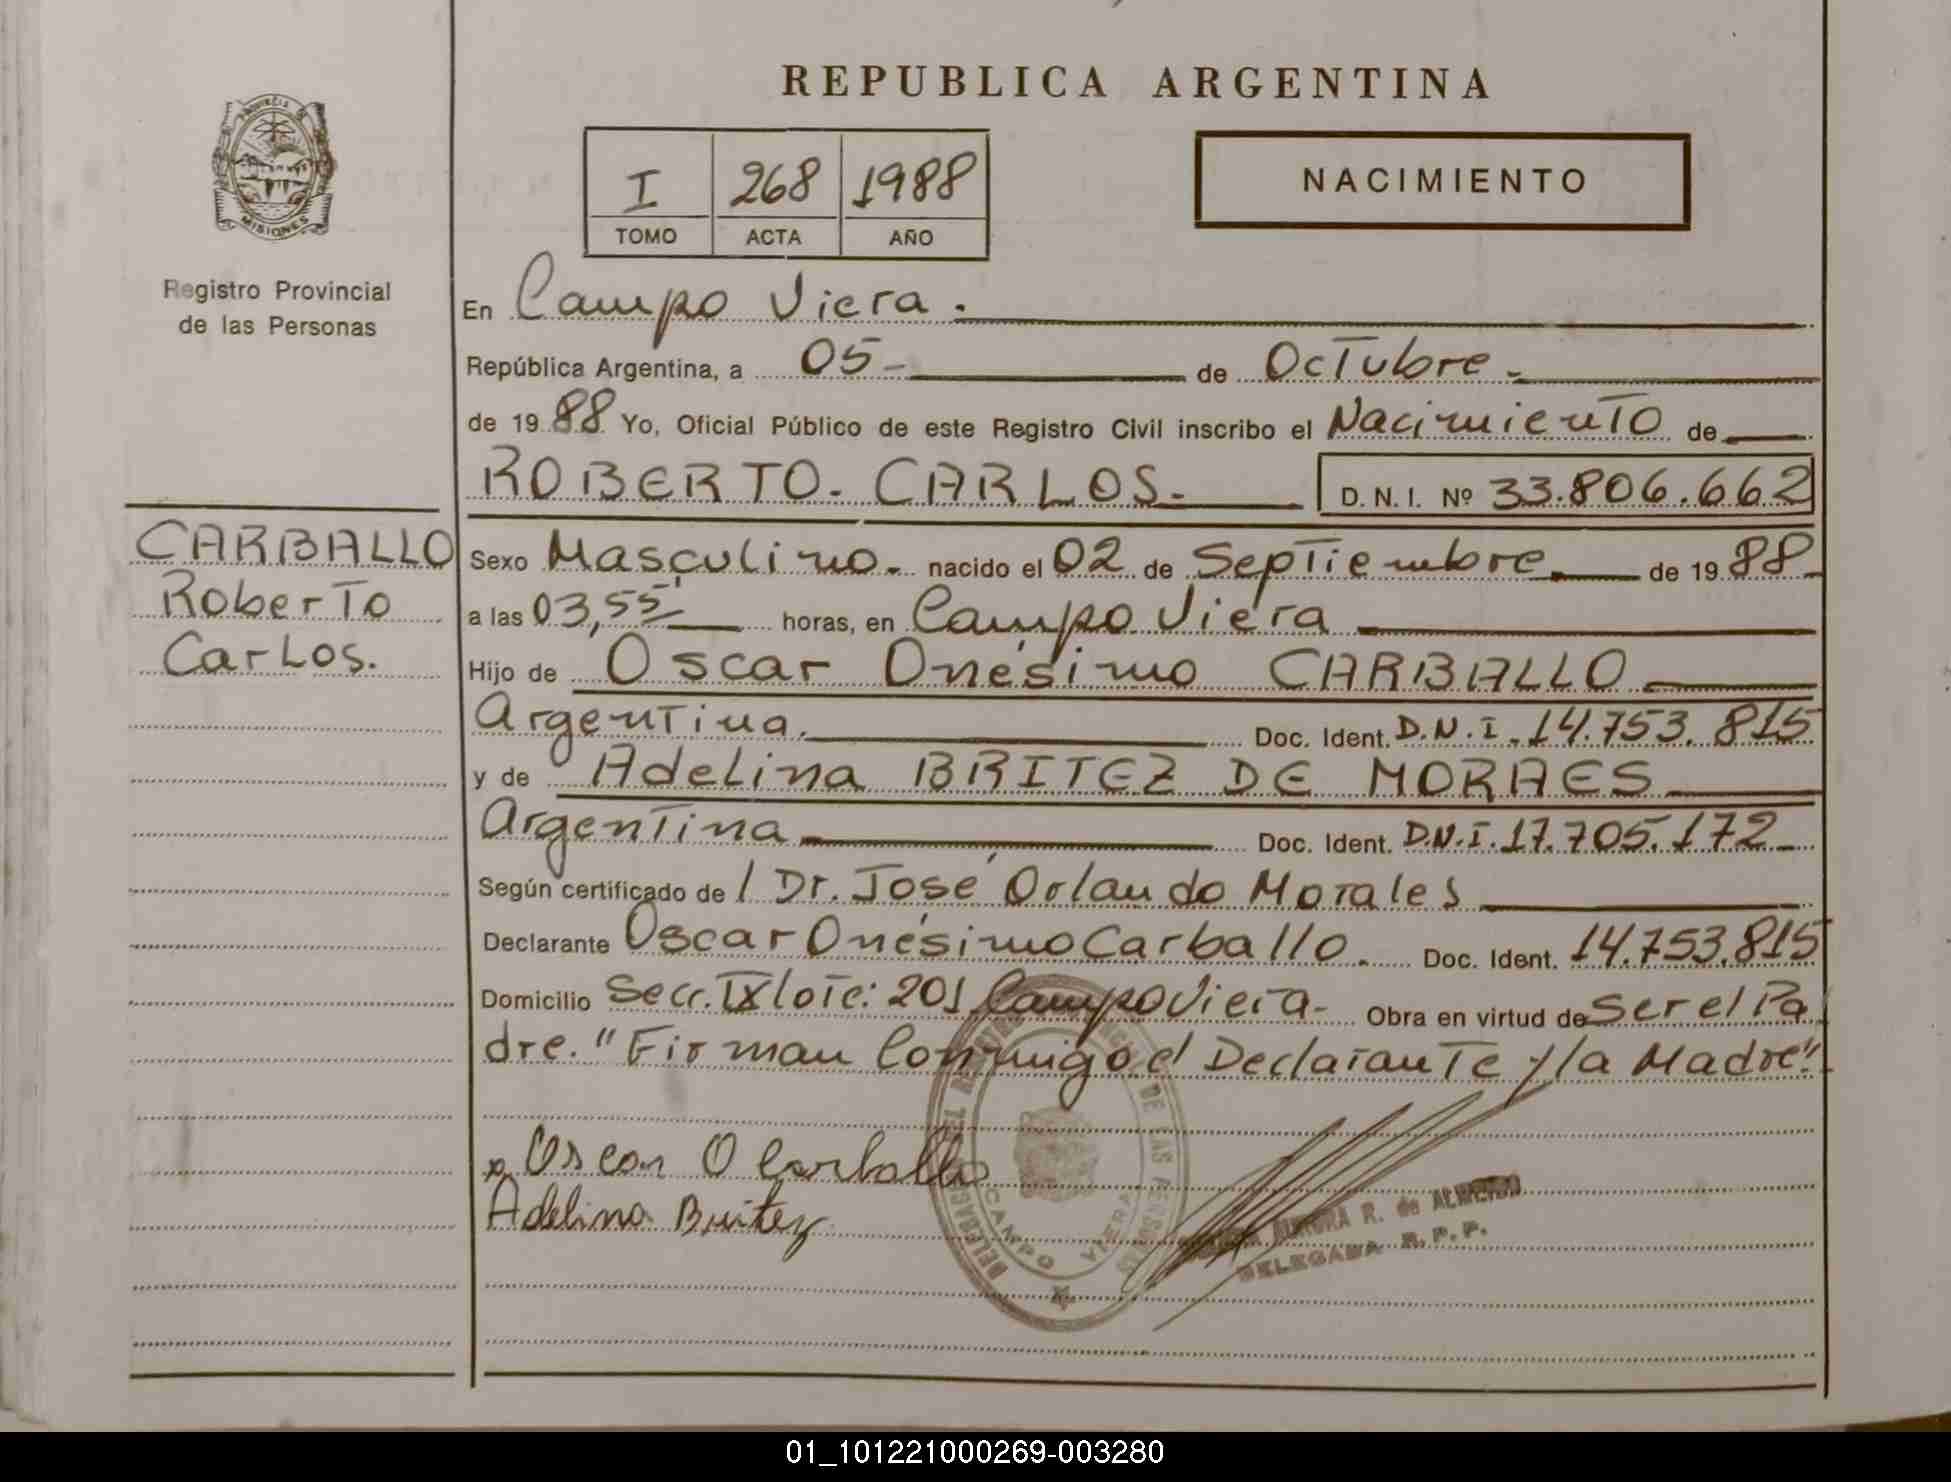 REPUBLICA ARGENTINA
PROVINCIA DE
MISIONES
Registro Provincial
de las Personas
I 268 1988
TOMO ACTA AÑO
NACIMIENTO
En Campo Viera.
República Argentina, a 05- de Octubre.
de 1988 Yo, Oficial Público de este Registro Civil inscribo el Nacimiento de
ROBERTO. CARLOS.- D. N. I. Nº 33.806.662
CARBALLO
Roberto
Carlos.
Sexo Masculino. nacido el 02 de Septiembre. de 1988
a las 03,55 horas, en Campo Viera
Hijo de Oscar Onésimo CARBALLO
Argentina. Doc. Ident. D.N.I. 14.753.815
y de Adelina BRITEZ DE MORAES
Argentina Doc. Ident. D.N.I. 17.705.172
Según certificado de / Dr. José Orlando Morales
Declarante Oscar Onésimo Carballo. Doc. Ident. 14.753.815
Domicilio Secc. IX lote: 201 Campo Viera- Obra en virtud de ser el Pa
dre. "Firman Conmigo el Declarante y la Madre".
x Oscar O Carballo
Adelina Britez
DE LAS PERSONAS
CAMPO VIERA
AURORA R. de ALMEIDA
DELEGADA R. P. P.
01_101221000269-003280